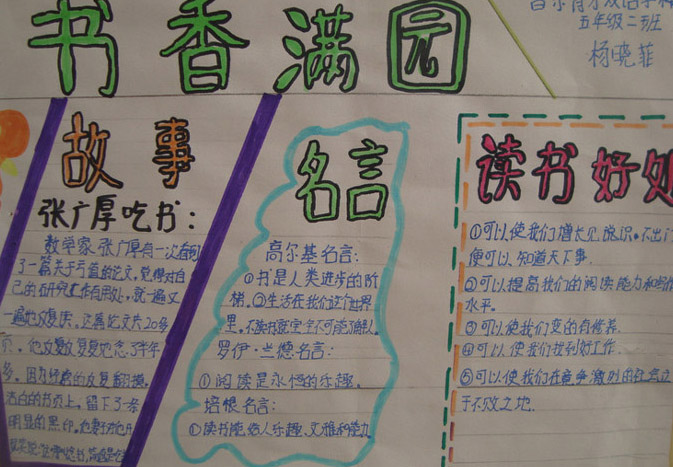 书香满园
五年级二班
杨晓菲
故事
张广厚吃书：
数学家张广厚有一次看到
了一篇关于亏值的论文，觉得对自
己的研究工作有用处，就一遍又
一遍地反复读。这篇论文共20多
页，他反反复复地念了半年
多。因为经常的反复翻摸，
洁白的书页上，留下了一条
明显的黑印。
名言
高尔基名言：
①书是人类进步的阶
梯。②生活在我们这个世界
里，不读书就完全不可能了解人
罗伊·兰德名言：
①阅读是永恒的乐趣。
培根名言：
①读书能给人乐趣、文雅和能力
读书好处
①可以使我们增长见识。不出门
便可以知道天下事.
②可以提高我们的阅读能力和写作
水平。
③可以使我们变的有修养.
④可以使我们找到好工作.
⑤可以使我们在竞争激烈的社会立
于不败之地.